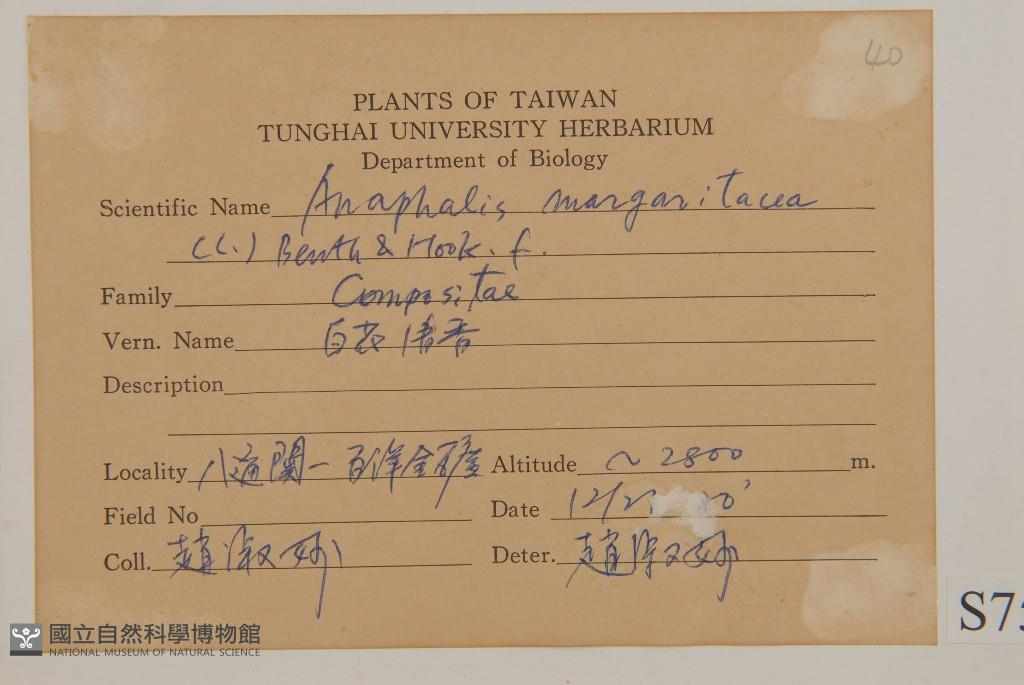 40
PLANTS OF TAIWAN
TUNGHAI UNIVERSITY HERBARIUM
Department of Biology
Scientific Name Anaphalis margaritacea
(L.) Benth & Hook. f.
Family Compositae
Vern. Name 白花清香
Description
Locality 八通關一百洋金礦 Altitude ~2800 m.
Field No
Date 12/2
Coll. 趙淑妙 Deter. 趙淑妙
S75
國立自然科學博物館
NATIONAL MUSEUM OF NATURAL SCIENCE